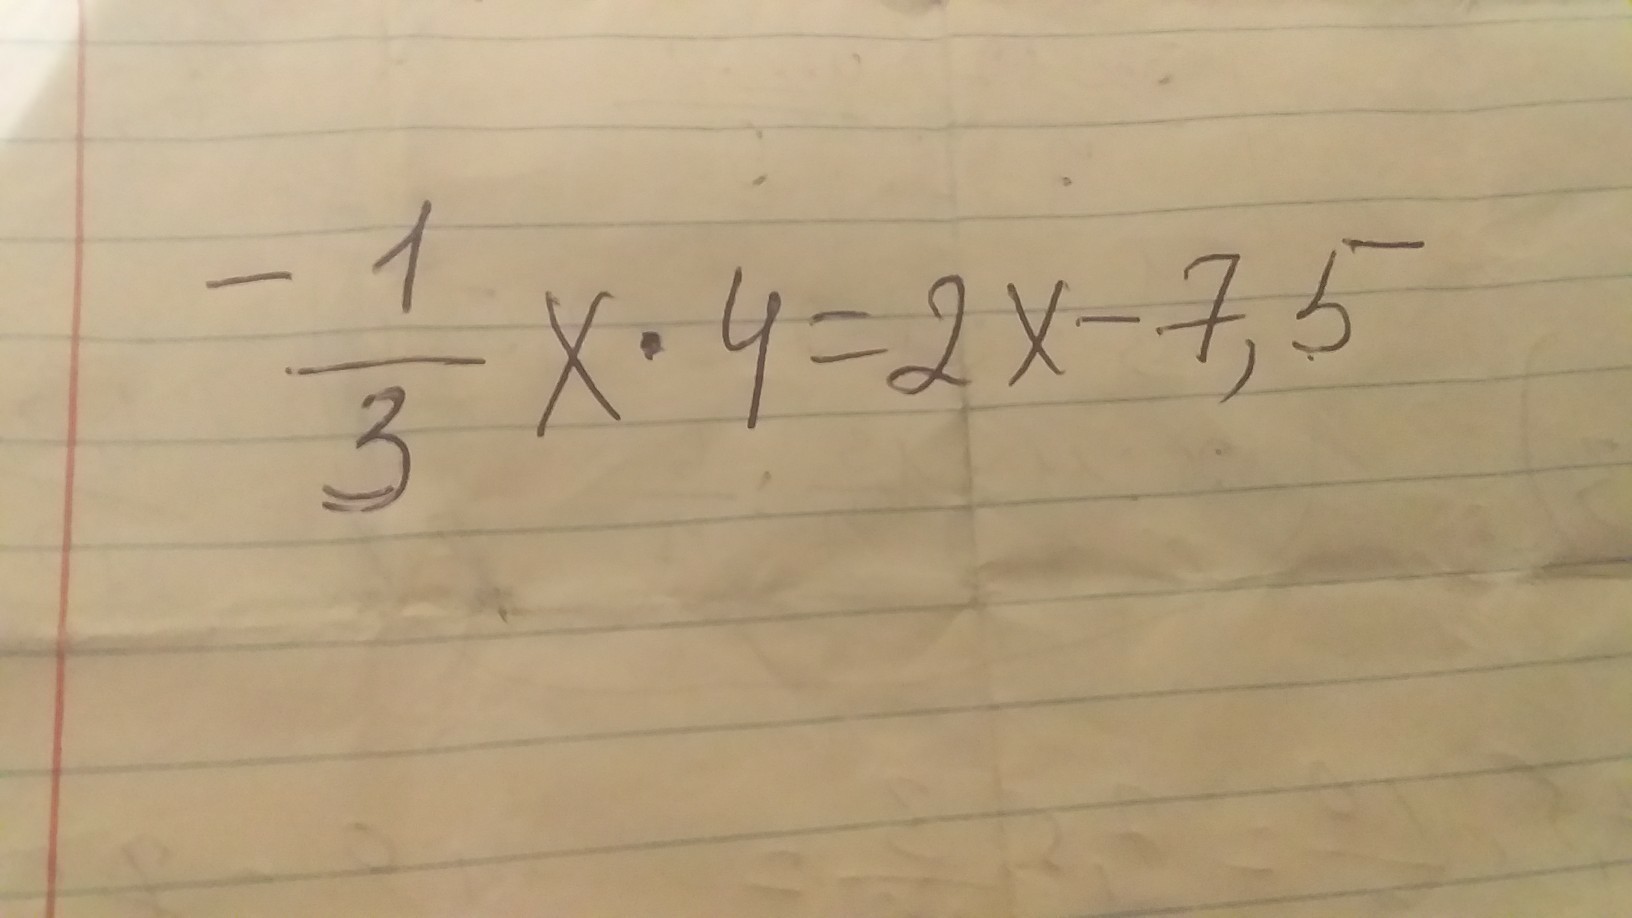 -1/3 x · 4 = 2x - 7,5